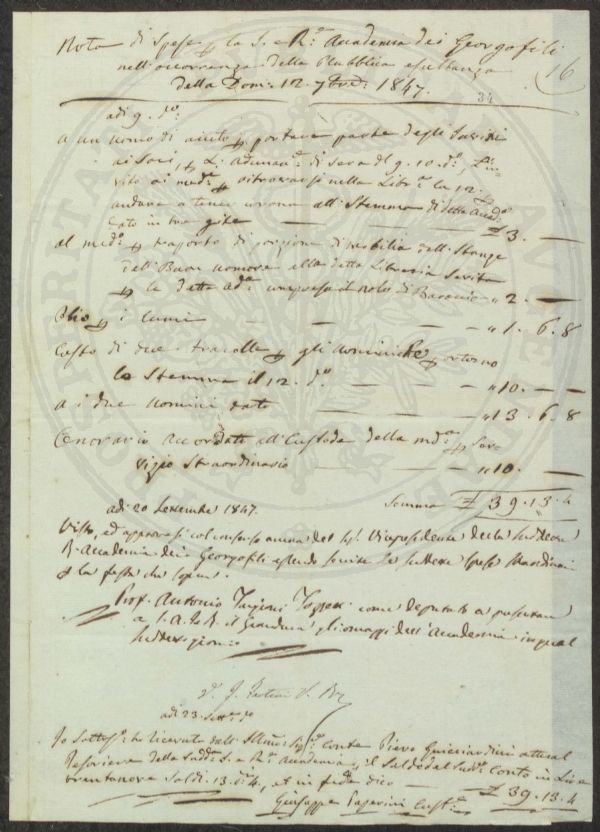 Nota di Spese p la S. e R.ª Accademia dei Georgofili
nell'occorrenza della Pubblica esultanza
della Dom: 12. 7bre 1847.
16
34
adì 9. d.º
a un uomo di aiuto p portare parte degli Inviti
ai Soci, p L' adunan. di sera dl 9. 10. d.º, L'in-
vito ai med.i p ritrovarsi nella Libr.ª la 12.
andare a tenere all' Stemma di detta Accad.ª
in tre gite — £ 3. —
al med.º p trasporto di porzione di mobilia dall. Stanze
dell' Buon umore alla detta Libreria servita
p la detta ad.ª compreso il nolo di Baroccio " 2. —
Olio p i lumi — " 1. 6. 8
Costo di due tracolle p gli uomini che portorno
lo Stemma il 12. d.º — " 10. —
a i due uomini dati — " 13. 6. 8
Onorario accordato all' Custode della med.ª p Ser-
vizio Straordinario — " 10. —
Somma £ 39. 13. 4
adì 20 Settembre 1847.
Visto, ed approvasi col consenso del Sig. Vicepresidente della Sud
R. Accademia dei Georgofili essendo servite le suddette spese straordinarie
p la festa che sopra.
Prof. Antonio Targioni Tozzetti come deputato a presentare
a S. A. I. e R. il Granduca gli omaggi dell' Accademia in qual
adì 23. Sett.e d.º
Io Sottos.º ho ricevuto dall' Illmo Sig.e Conte Piero Guicciardini attual
Tesoriere della Sudd.ª S. e R.ª Accademia, il Saldo del Sud.º Conto in Lire
trentanove Soldi. 13. d. 4, et in fede dico — £ 39. 13. 4
Giuseppe Papini Cust.e